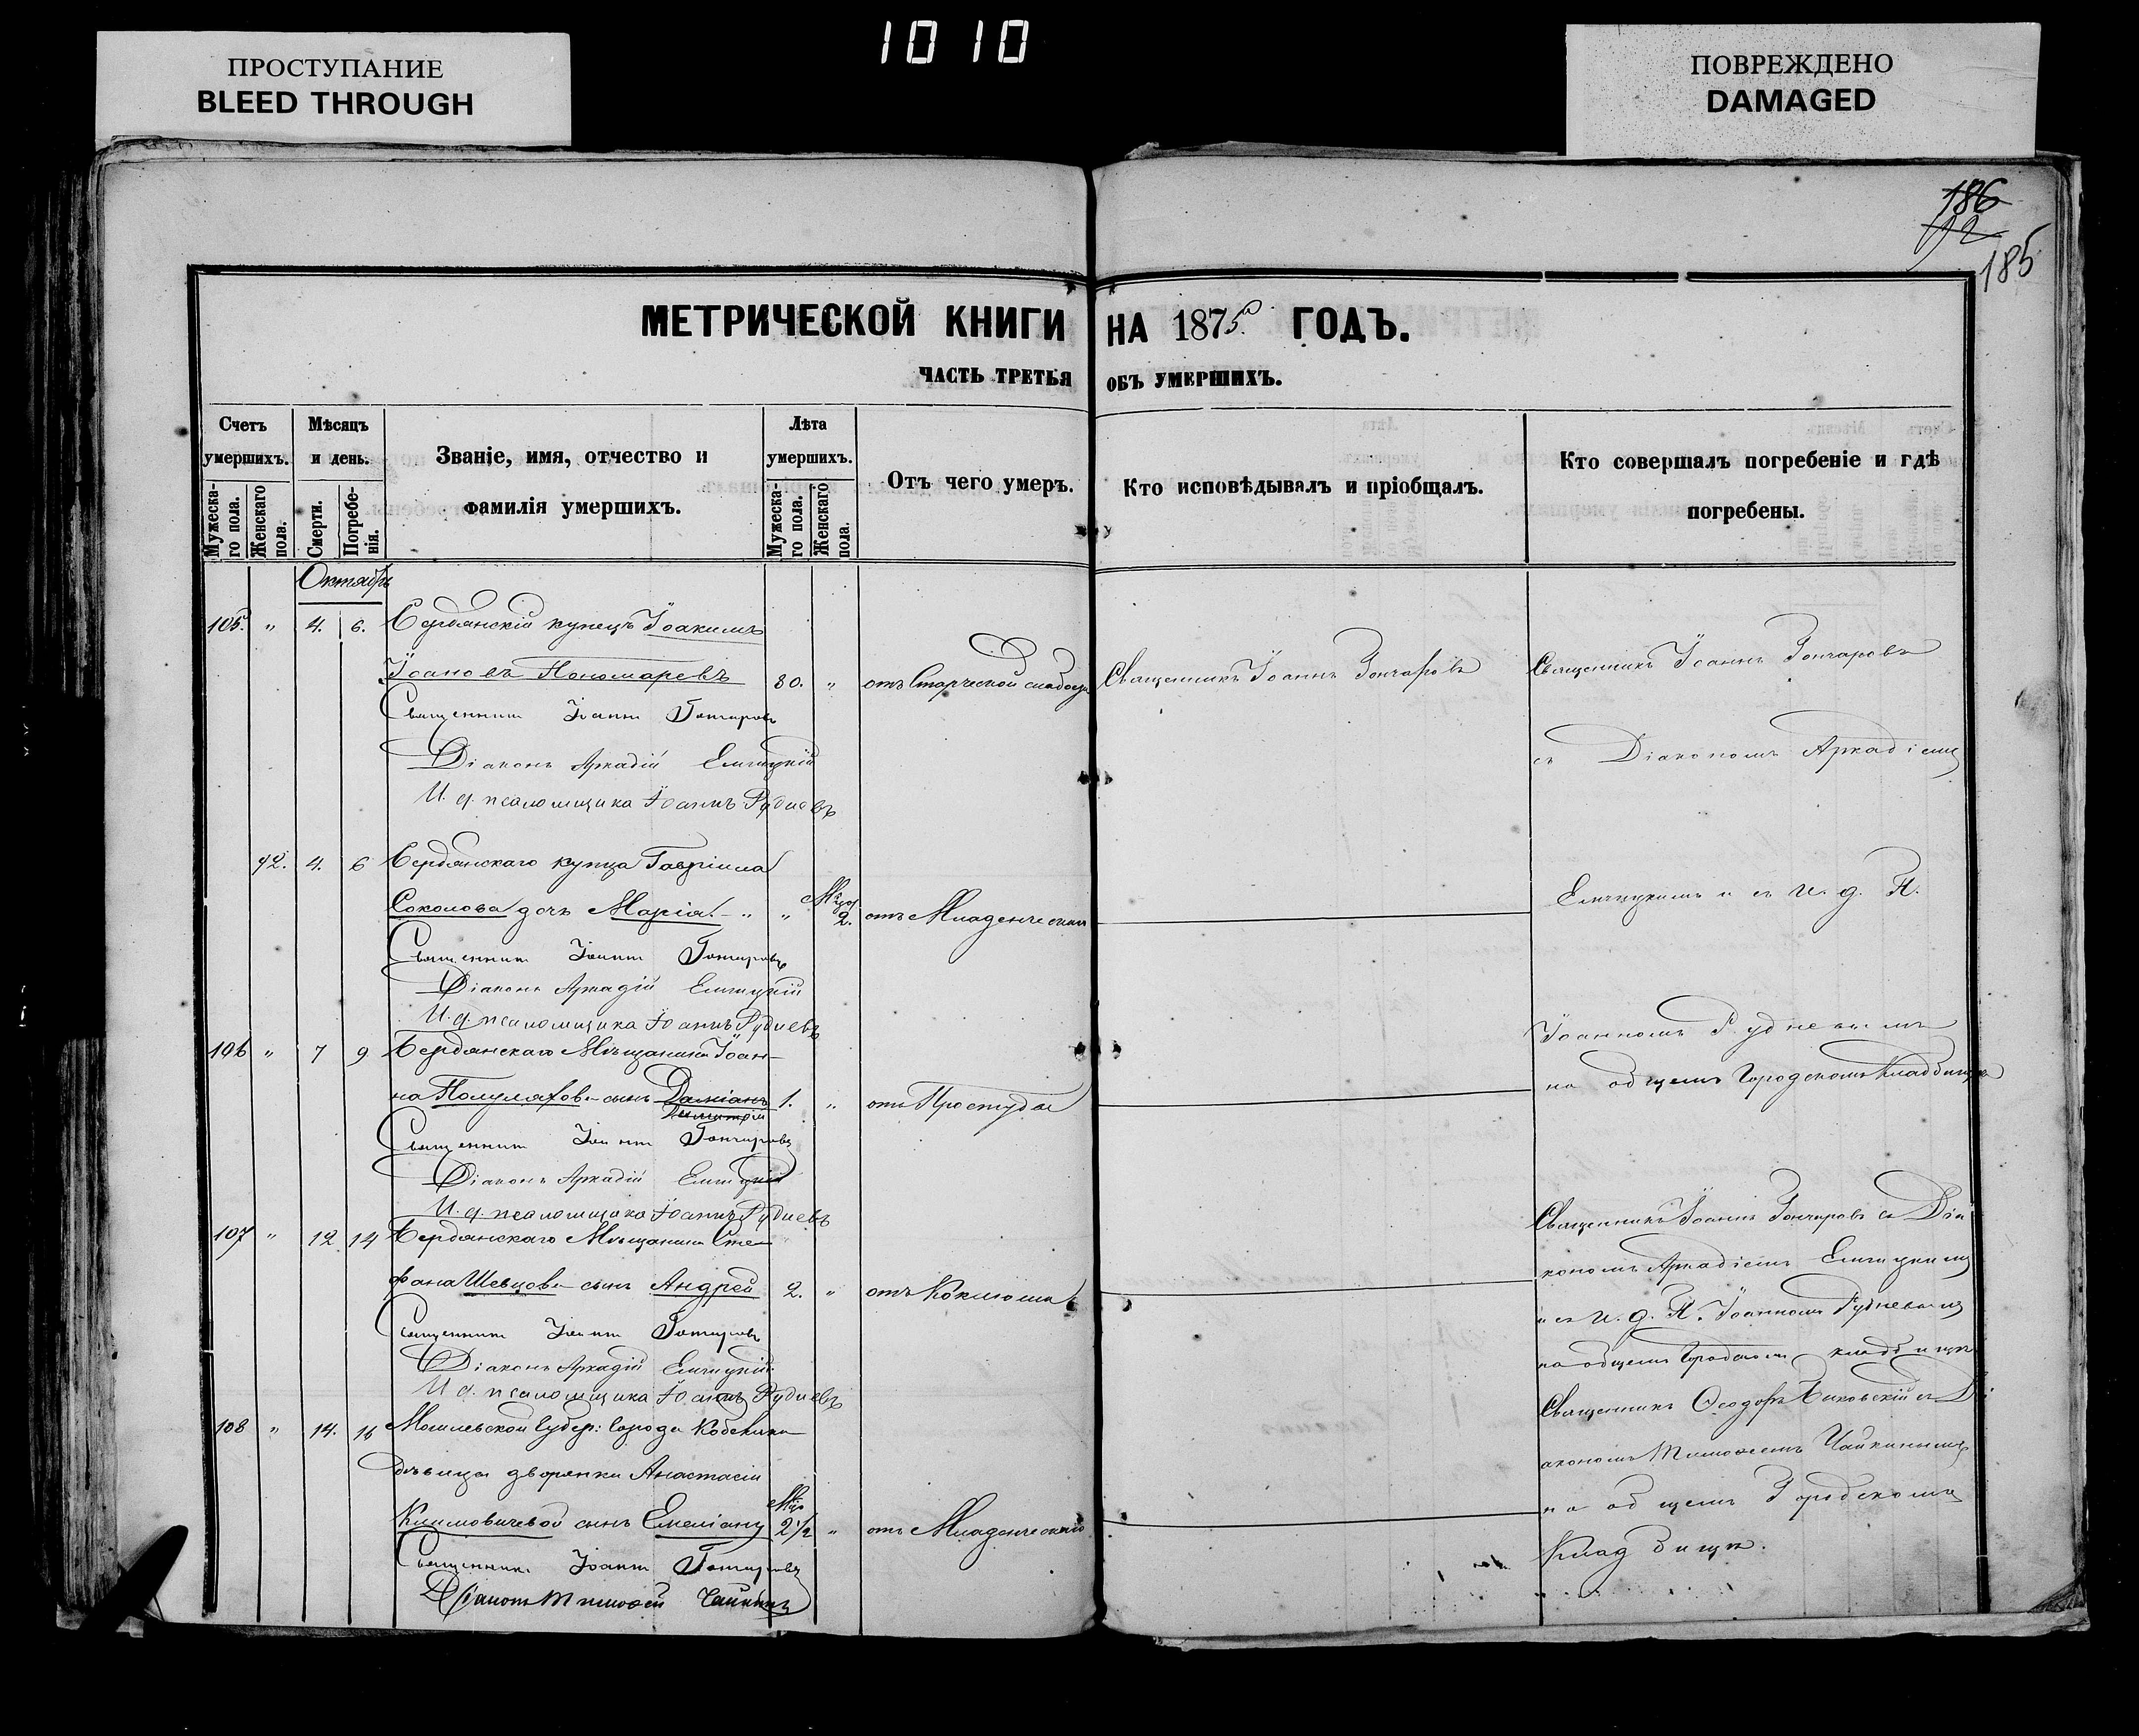 ПРОСТУПАНИЕ
BLEED THROUGH
1010
ПОВРЕЖДЕНО
DAMAGED
186
185
МЕТРИЧЕСКОЙ КНИГИ НА 1875 ГОДЪ.
ЧАСТЬ ТРЕТЬЯ ОБЪ УМЕРШИХЪ.
Счетъ умершихъ.
Мужеска-го пола.
Женскаго пола.
Мѣсяцъ и день.
Смерти.
Погребе-нія.
Званіе, имя, отчество и фамилія умершихъ.
Лѣта умершихъ.
Мужеска-го пола.
Женскаго пола.
Отъ чего умеръ.
Кто исповѣдывалъ и пріобщалъ.
Кто совершалъ погребеніе и гдѣ погребены.
Октябрь
105. " 4. 6. Бердянскій купецъ Іоакимъ
Іоановъ Пономаревъ 80. " отъ Старческой слабости Священникъ Іоаннъ Гончаровъ Священникъ Іоаннъ Гончаровъ
Священникъ Іоаннъ Гончаровъ
Діаконъ Аркадій
съ Діакономъ Аркадіемъ
И. д. псаломщика Іоаннъ Рудневъ
42. 4. 6 Бердянскаго купца Гавріила
Соколова дочь Марія " " 2. отъ Младенческой
и съ И. д. П.
Священникъ Іоаннъ Гончаровъ
Діаконъ Аркадій
И. д. псаломщика Іоаннъ Рудневъ
Іоанномъ Рудневымъ
106 " 7 9 Бердянскаго Мѣщанина Іоан-
на сынъ Даміанъ 1. " отъ Простуды
Димитрій
на общемъ Городскомъ Кладбищѣ
Священникъ Іоаннъ Гончаровъ
Діаконъ Аркадій
И. д. псаломщика Іоаннъ Рудневъ
107 " 12 14 Бердянскаго Мѣщанина Сте-
фана Шевцова сынъ Андрей 2. " отъ Коклюша
Священникъ Іоаннъ Гончаровъ съ Діа
кономъ Аркадіемъ
и съ И. д. П. Іоанномъ Рудневымъ
на общемъ Городскомъ кладбищѣ
Священникъ Іоаннъ Гончаровъ
Діаконъ Аркадій
И. д. псаломщика Іоаннъ Рудневъ
108 " 14. 16 Могилевской Губер: Города
дѣвицы дворянки Анастасіи
Климовичевой сынъ Емеліанъ 2½ " отъ Младенческаго
Священникъ Ѳеодоръ съ Ді
акономъ Тимоѳеемъ Чайкинымъ
на общемъ Городскомъ
Кладбищѣ.
Священникъ Іоаннъ Гончаровъ
Діаконъ Тимоѳей Чайкинъ